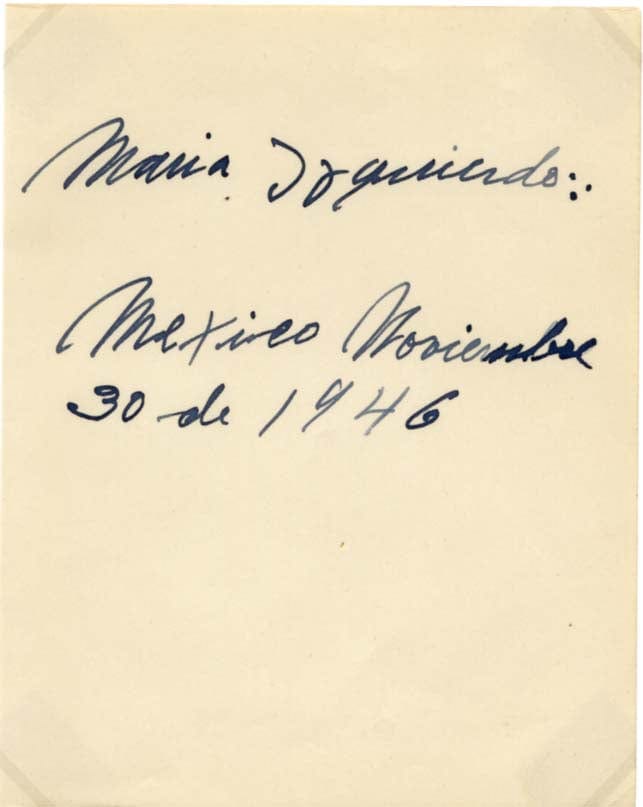 Maria Izquierdo:.
Mexico Noviembre
30 de 1946